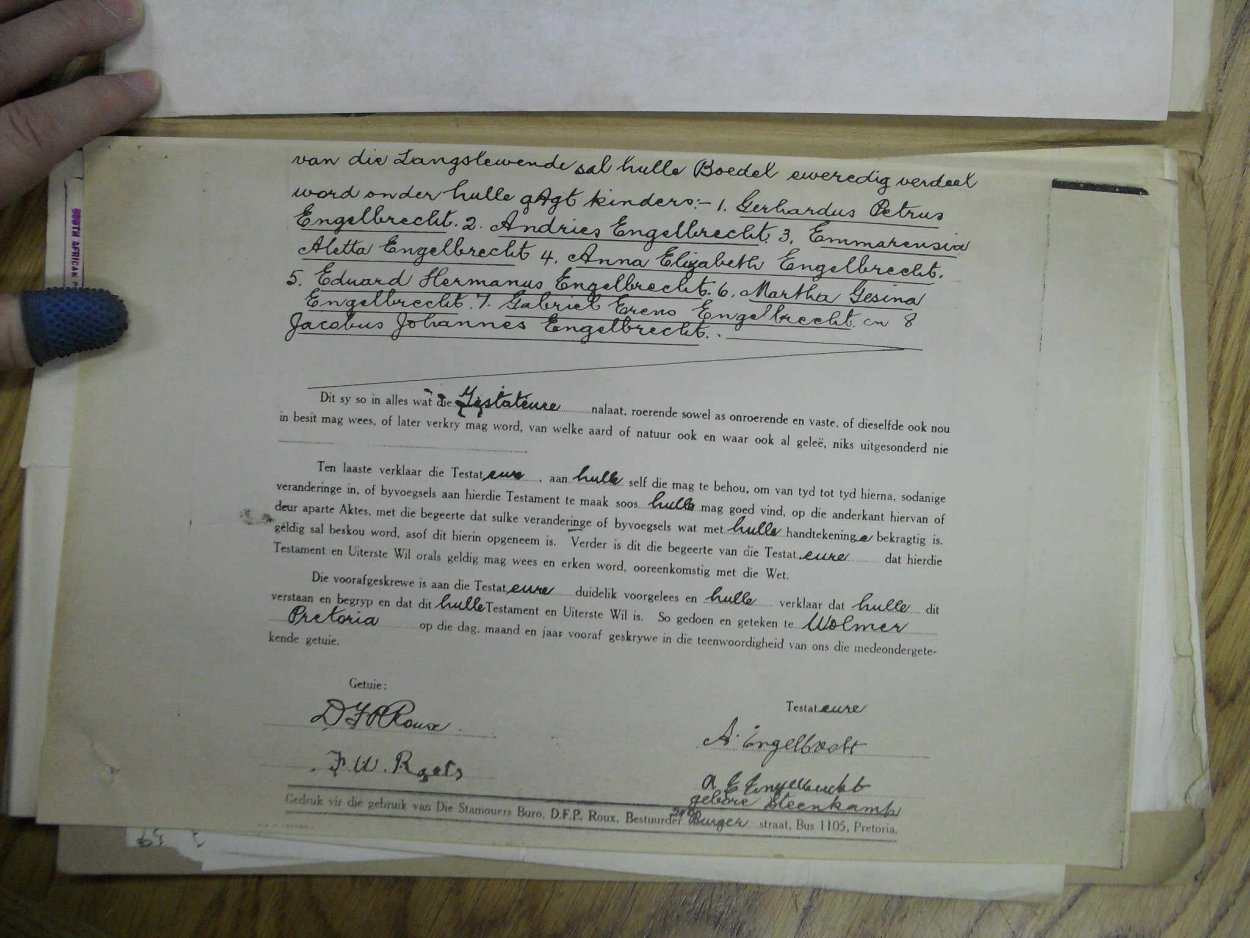 van die Langslewende sal hulle Boedel eweredig verdeel
word onder hulle agt kinders:- 1. Gerhardus Petrus
Engelbrecht. 2. Andries Engelbrecht. 3. Emmarensia
Aletta Engelbrecht 4. Anna Elizabeth Engelbrecht.
5. Eduard Hermanus Engelbrecht. 6. Martha Gesina
Engelbrecht. 7. Gabriel Ereno Engelbrecht en 8
Jacobus Johannes Engelbrecht.
Dit sy so in alles wat die Testateure nalaat, roerende sowel as onroerende en vaste, of dieselfde ook nou
in besit mag wees, of later verkry mag word, van welke aard of natuur ook en waar ook al geleë, niks uitgesonderd nie
Ten laaste verklaar die Testateure, aan hulle self die mag te behou, om van tyd tot tyd hierna, sodanige
veranderinge in, of byvoegsels aan hierdie Testament te maak soos hulle mag goed vind, op die anderkant hiervan of
deur aparte Aktes, met die begeerte dat sulke veranderinge of byvoegsels wat met hulle handtekeninge bekragtig is,
geldig sal beskou word, asof dit hierin opgeneem is. Verder is dit die begeerte van die Testateure dat hierdie
Testament en Uiterste Wil orals geldig mag wees en erken word, ooreenkomstig met die Wet.
Die voorafgeskrewe is aan die Testateure duidelik voorgelees en hulle verklaar dat hulle dit
verstaan en begryp en dat dit hulle Testament en Uiterste Wil is. So gedoen en geteken te Wolmer
Pretoria op die dag, maand en jaar vooraf geskrywe in die teenwoordigheid van ons die medeondergete-
kende getuie.
Getuie:
Testateure
D F P Roux
A. Engelbrecht
F. W. Raets
A E Engelbrecht
gebore Steenkamp
Gedruk vir die gebruik van Die Stamouers Buro, D.F.P. Roux, Bestuurder Burger straat, Bus 1105, Pretoria.
SOUTH AFRICAN